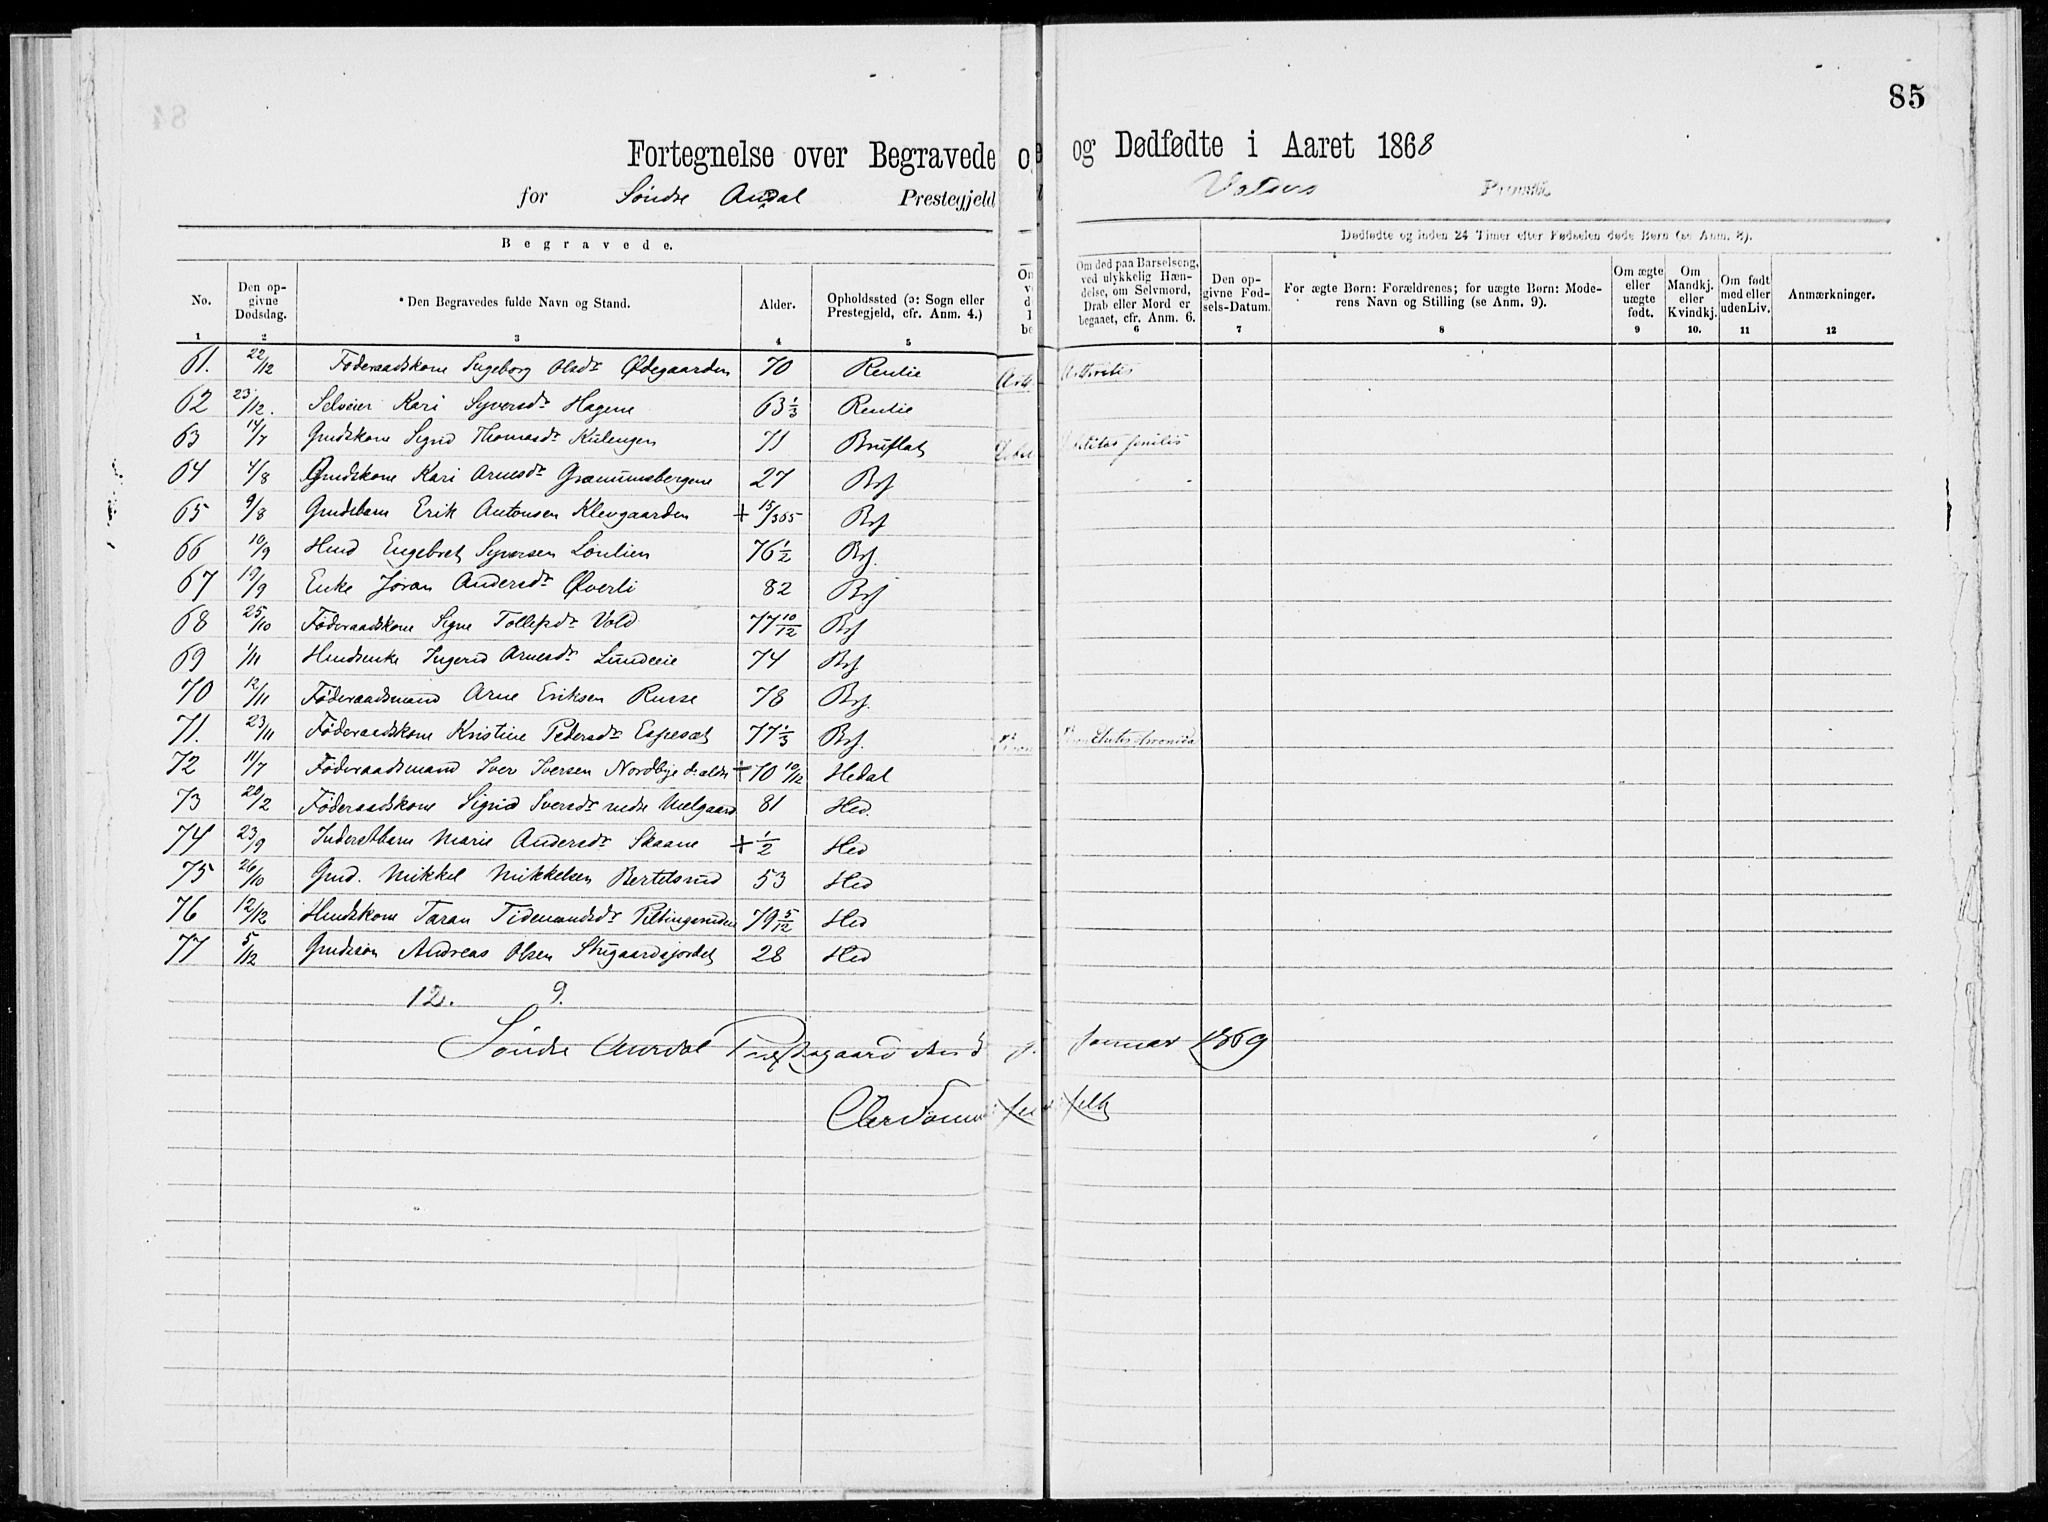 85
Fortegnelse over Begravede og Dødfødte i Aaret 1868
for Søndre Aurdal Prestegjeld Valders Provsti
Begravede.
Dødfødte og inden 24 Timer efter Fødselen døde Børn (se Anm. 8).
No.
Den opgivne Dødsdag.
*Den Begravedes fulde Navn og Stand.
Alder.
Opholdssted (ɔ: Sogn eller Prestegjeld, cfr. Anm. 4.)
Om død paa Barselseng, ved ulykkelig Hændelse, om Selvmord, Drab eller Mord er begaaet, cfr. Anm. 6.
Den opgivne Fødsels-Datum.
For ægte Børn: Forældrenes; for uægte Børn: Moderens Navn og Stilling (se Anm. 9).
Om ægte eller uægte født.
Om Mandkj. eller Kvindkj.
Om født med eller uden Liv.
Anmærkninger.
1 2 3 4 5 6 7 8 9 10. 11 12
61. 22/12 Føderaadskone Ingeborg Olsdr Ødegaarden 70 Renlie Arthritis
62 23/12. Selveier Kari Syversdr Hagene 63 1/3 Renlie
63 14/7 Gmdskone Sigrid Thomasdr Kiilengen 71 Bruflat Debilitas senilis
64 4/8 Gmdskone Kari Arnesdr Grammsbergene 27 Brf
65 9/8 Gmdsbarn Erik Antonsen Klevgaarden + 15/365 Brf
66 10/9 Hmd Engebret Syversen Lonlien 76 1/2 Brf.
67 19/9 Enke Jøran Andersdr Øverli 82 Brf
68 25/10 Føderaadskone Signe Tollefsdr Vold 77 10/12 Brf
69 1/11 Hmdsenke Ingerid Arnesdr Lundeeie 74 Brf.
70 12/11 Føderaadsmand Arne Eriksen Russe 78 Brf.
71. 23/11 Føderaadskone Kristine Pedersdr Espeset 77 1/3 Brf. Bronchitis chronica
72 11/7 Føderaadsmand Iver Iversen Nordbye d. ældre + 70 10/12 Hedal
73 20/2 Føderaadskone Sigrid Iversdr nedre Melgaard 81 Hed.
74 23/9 Inderstbarn Marie Andersdr Skaane + 1/2 Hed
75 26/10 Gmd. Mikkel Mikkelsen Bertelsrud 53 Hed
76 12/12 Hmdskone Taran Tidemandsdr Piltingsruden 79 5/12 Hed
77 5/12 Gmdsøn Andreas Olsen Stugaardsjordet 28 Hed
12. 9.
Søndre Aurdal Præstegaard den Januar 1869